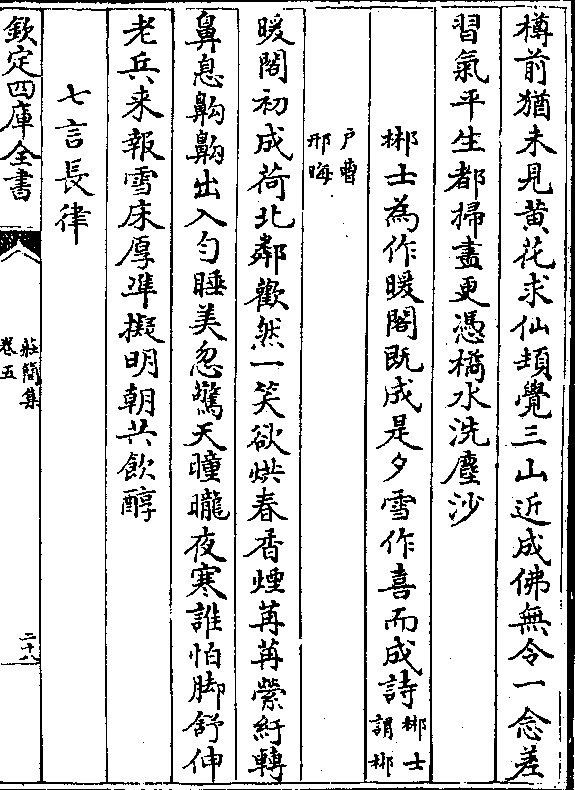 樽前猶未見黄花求仙頓覺三山近成佛無令一念差
習氣平生都掃盡更憑橋水洗塵沙
郴士為作暖閣既成是夕雪作喜而成詩郴士謂郴
户曹邢晦
暖閣初成荷北鄰歡然一笑欲烘春香煙苒苒縈紆轉
鼻息齁齁出入勻睡美忽驚天曈曨夜寒誰怕脚舒伸
老兵来報雪床厚凖擬明朝共飲醇
七言長律
欽定四庫全書
莊簡集
卷五
二十八